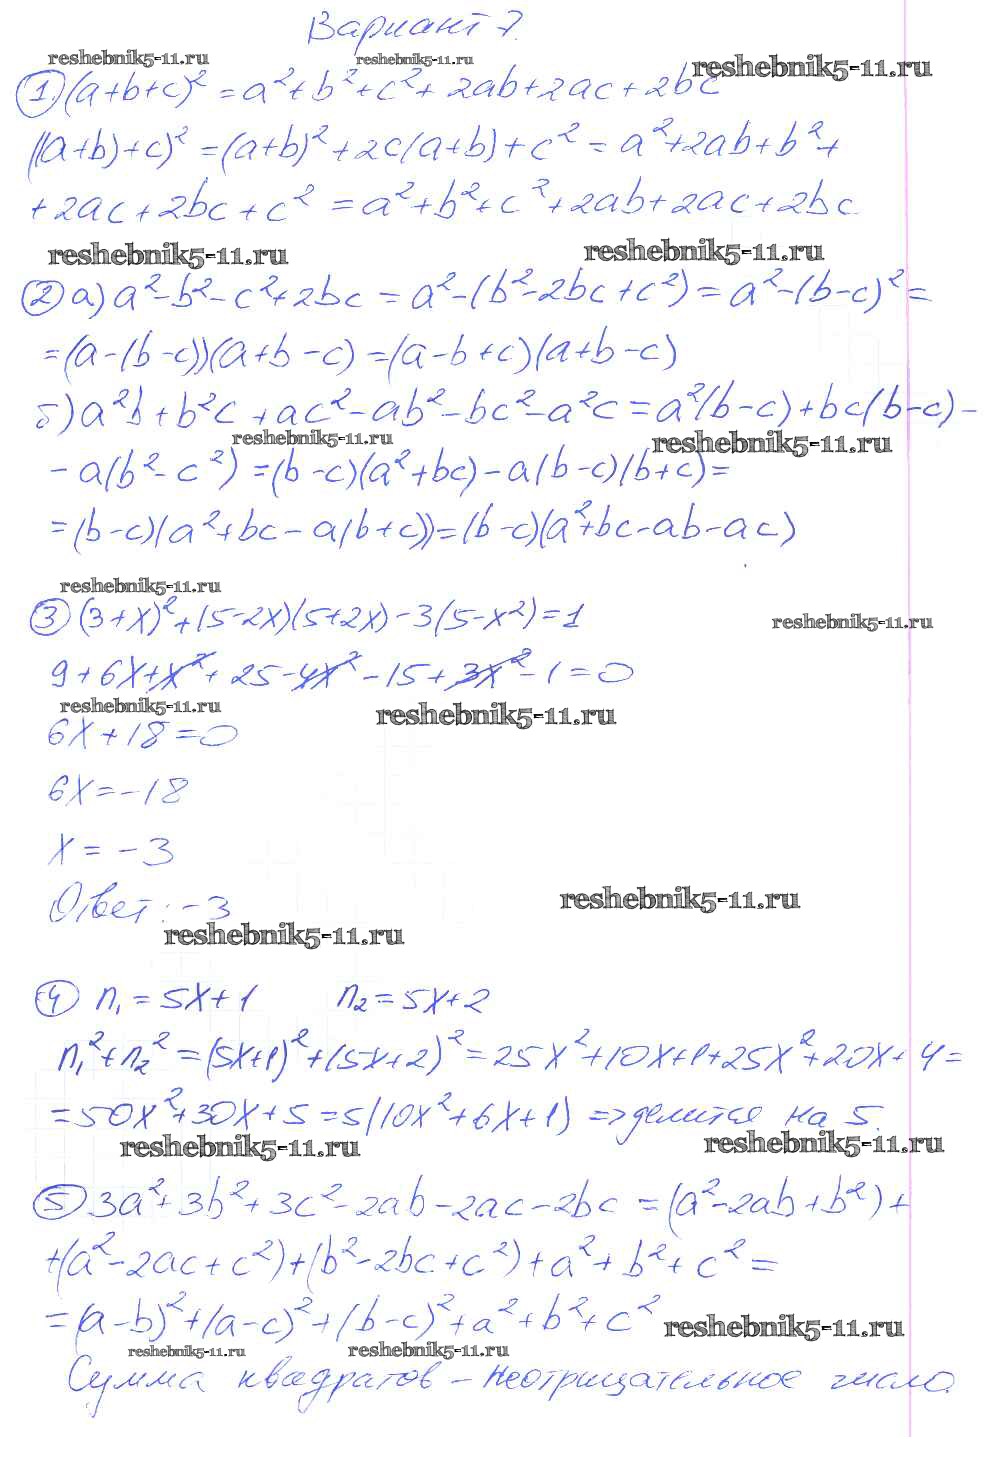 Вариант 7.
reshebnik5-11.ru reshebnik5-11.ru reshebnik5-11.ru
1. (a+b+c)² = a²+b²+c²+2ab+2ac+2bc
((a+b)+c)² = (a+b)²+2c(a+b)+c² = a²+2ab+b²+
+2ac+2bc+c² = a²+b²+c²+2ab+2ac+2bc.
reshebnik5-11.ru reshebnik5-11.ru
2 а) a²-b²-c²+2bc = a²-(b²-2bc+c²) = a²-(b-c)² =
=(a-(b-c))(a+b-c) =(a-b+c)(a+b-c)
б) a²b+b²c+ac²-ab²-bc²-a²c = a²(b-c)+bc(b-c)-
reshebnik5-11.ru reshebnik5-11.ru
-a(b²-c²) =(b-c)(a²+bc)-a(b-c)(b+c)=
=(b-c)(a²+bc-a(b+c))=(b-c)(a²+bc-ab-ac)
reshebnik5-11.ru
3 (3+x)²+(5-2x)(5+2x)-3(5-x²)=1
reshebnik5-11.ru
9+6x+x²+25-4x²-15+3x²-1=0
reshebnik5-11.ru reshebnik5-11.ru
6x+18=0
6x=-18
x=-3
Ответ: -3
reshebnik5-11.ru
reshebnik5-11.ru
4 n₁=5x+1 n₂=5x+2
n₁²+n₂² =(5x+1)²+(5x+2)²=25x²+10x+1+25x²+20x+4=
=50x²+30x+5=5(10x²+6x+1) => делится на 5.
reshebnik5-11.ru reshebnik5-11.ru
5 3a²+3b²+3c²-2ab-2ac-2bc =(a²-2ab+b²)+
+(a²-2ac+c²)+(b²-2bc+c²)+a²+b²+c² =
=(a-b)²+(a-c)²+(b-c)²+a²+b²+c²
reshebnik5-11.ru
reshebnik5-11.ru reshebnik5-11.ru
Сумма квадратов - неотрицательное число.